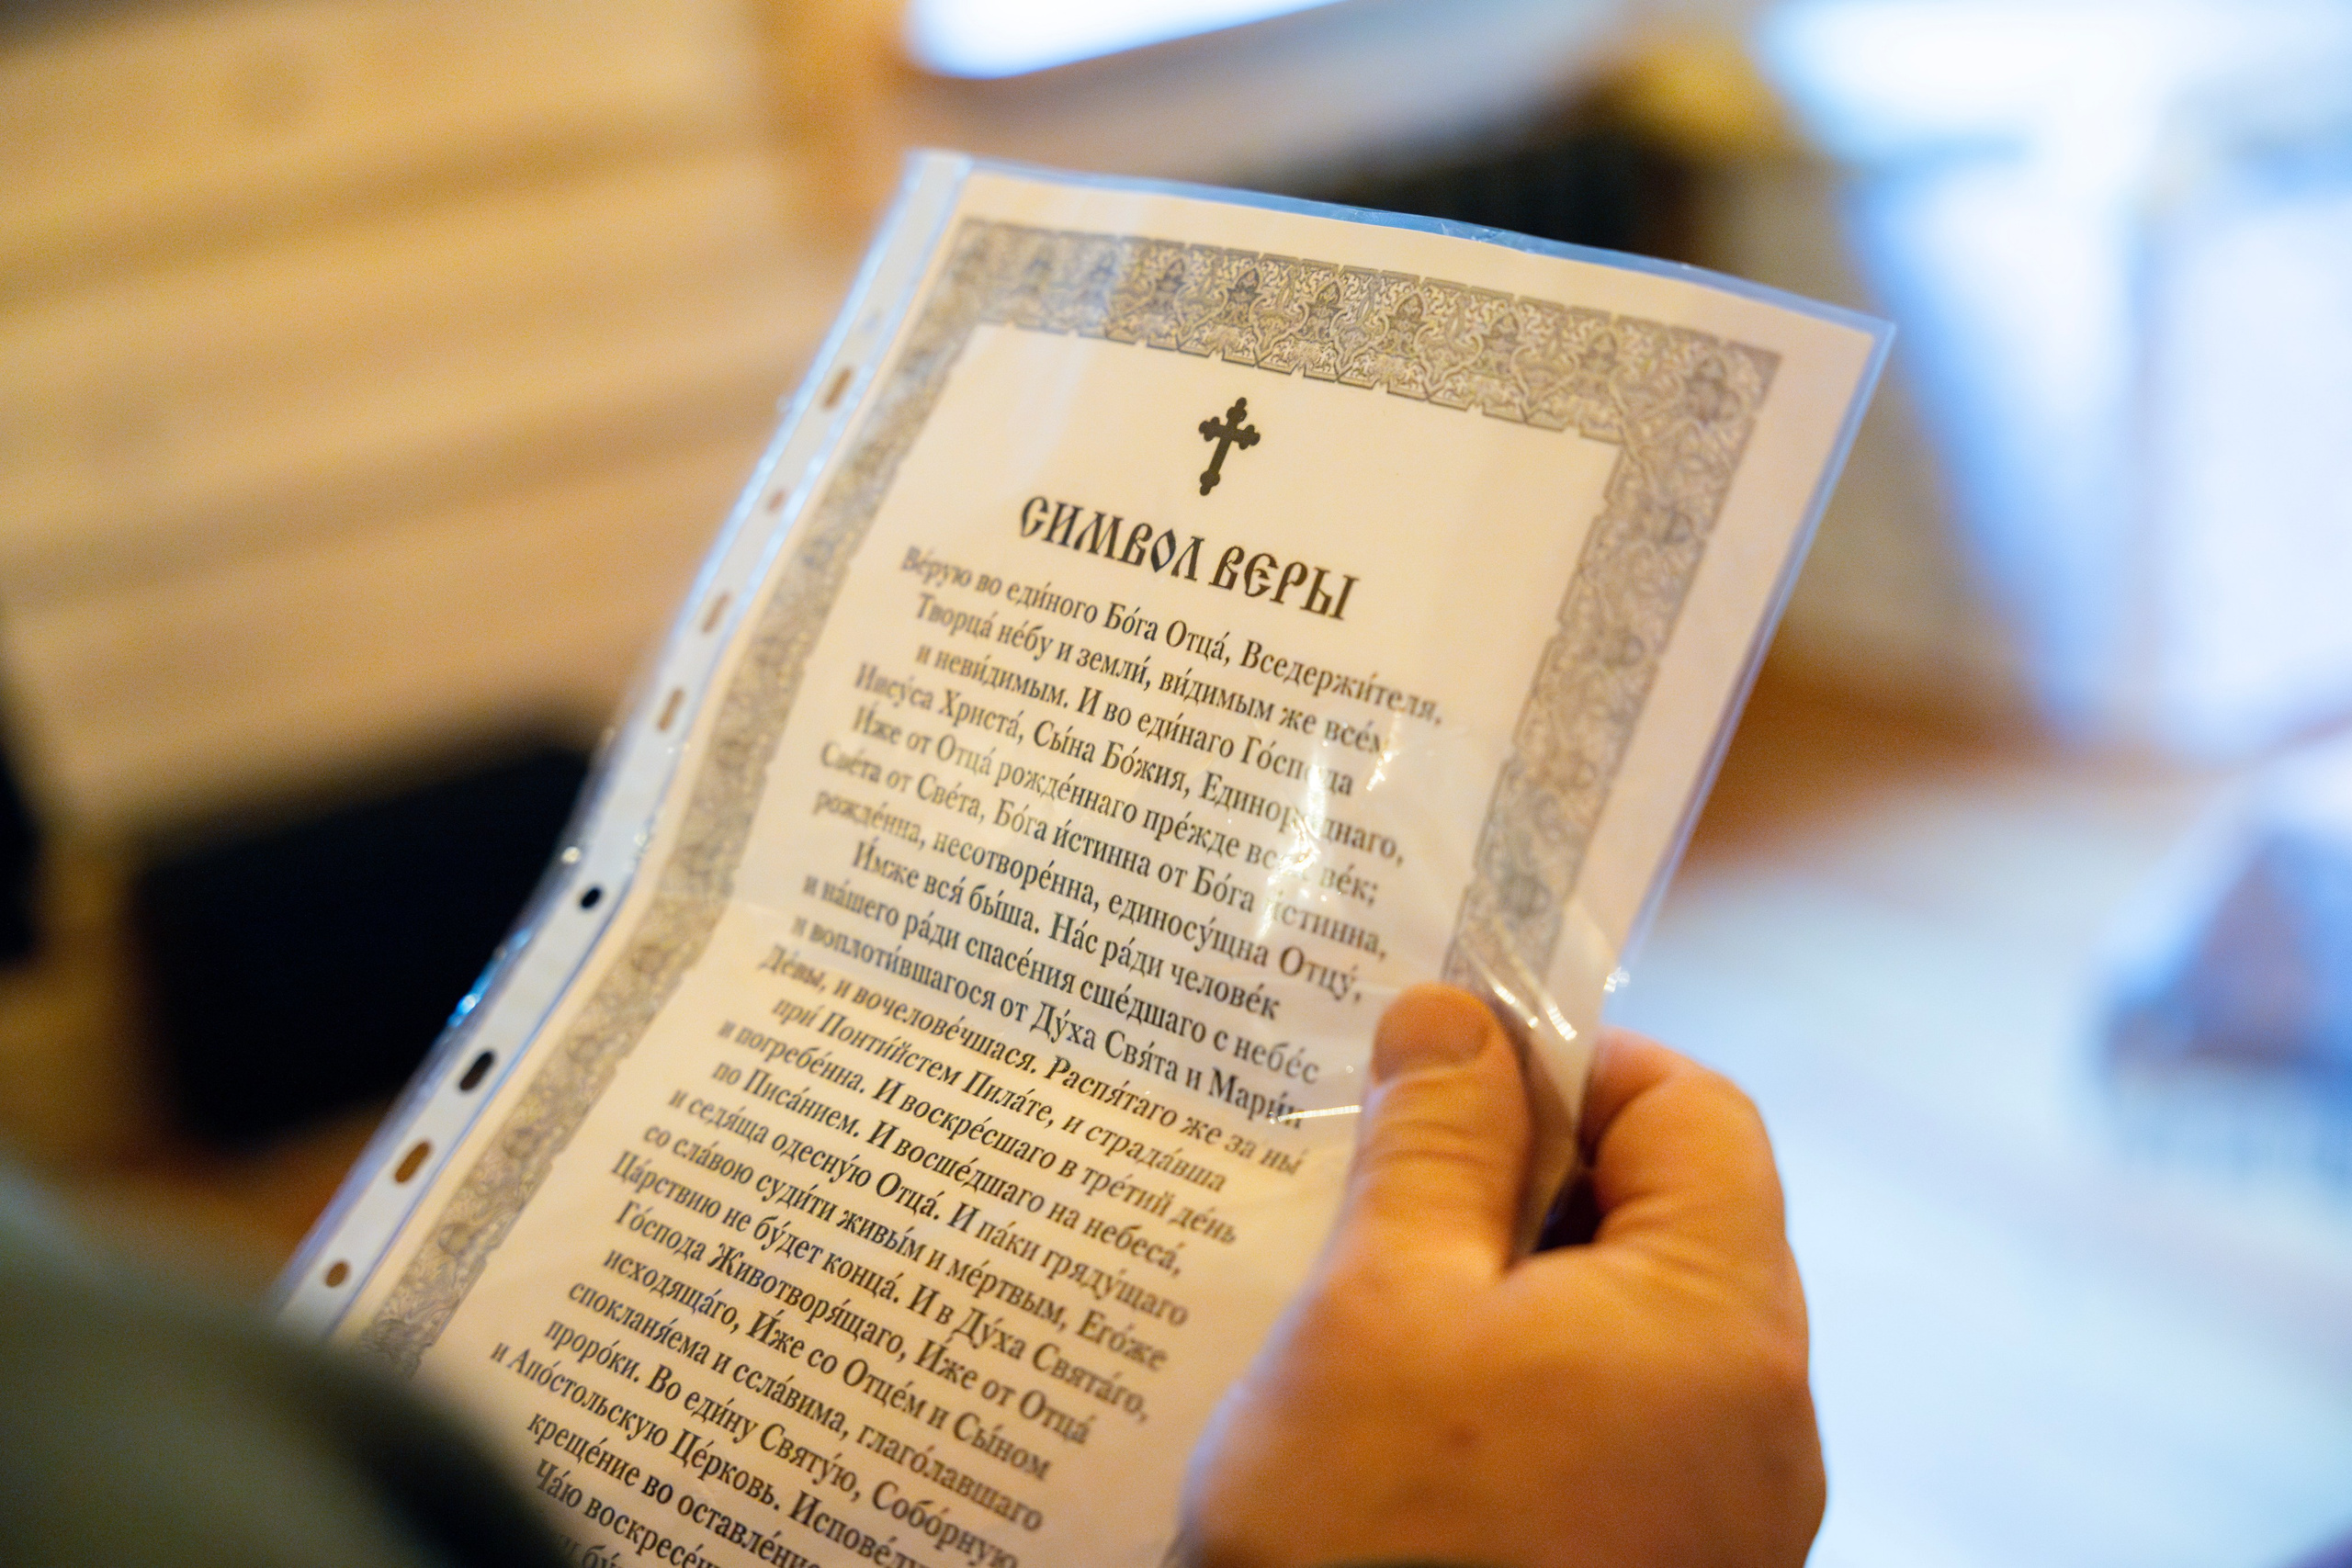 СИМВОЛ ВЕРЫ
Ве́рую во еди́ного Бо́га Отца́, Вседержи́теля,
Творца́ не́бу и земли́, ви́димым же все́м
и неви́димым. И во еди́наго Го́спода
Иису́са Христа́, Сы́на Бо́жия, Единоро́днаго,
И́же от Отца́ рожде́ннаго пре́жде все́х ве́к;
Све́та от Све́та, Бо́га и́стинна от Бо́га и́стинна,
рожде́нна, несотворе́нна, единосу́щна Отцу́,
И́мже вся́ бы́ша. На́с ра́ди челове́к
и на́шего ра́ди спасе́ния сше́дшаго с небе́с
и воплоти́вшагося от Ду́ха Свя́та и Мари́и
Де́вы, и вочелове́чшася. Распя́таго же за ны́
при́ Понти́йстем Пила́те, и страда́вша
и погребе́нна. И воскре́сшаго в тре́тий де́нь
по Писа́нием. И восше́дшаго на небеса́,
и седя́ща одесну́ю Отца́. И па́ки гряду́щаго
со сла́вою суди́ти живы́м и ме́ртвым, Его́же
Ца́рствию не бу́дет конца́. И в Ду́ха Свята́го,
Го́спода Животворя́щаго, И́же от Отца́
исходяща́го, И́же со Отце́м и Сы́ном
спокланя́ема и ссла́вима, глаго́лавшаго
проро́ки. Во еди́ну Святу́ю, Собо́рную
и Апо́стольскую Це́рковь.
креще́ние во оставле́ние
Ча́ю